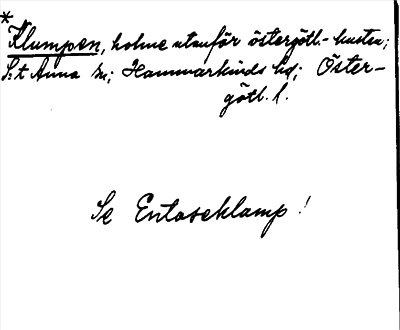 *
Klumpen, holme utanför östergötl.-kusten;
S:t Anna sn; Hammarkinds hd; Öster-
götl. l.
Se Entaseklamp!